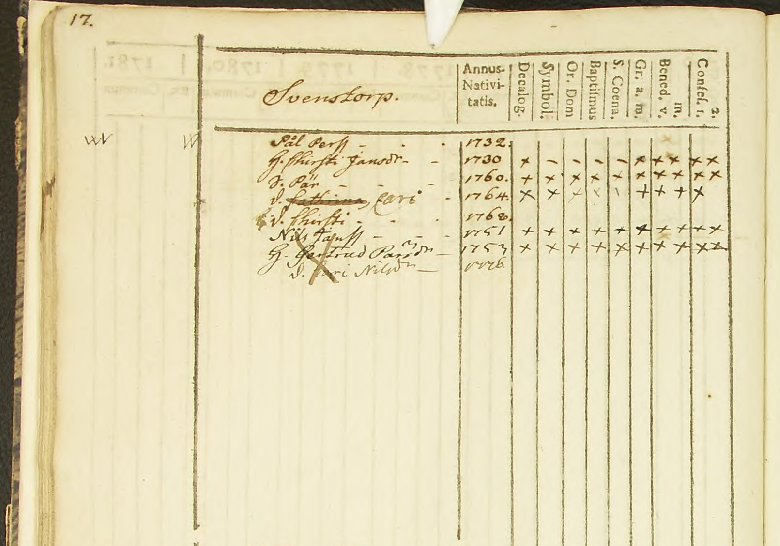 17.
Annus Nativitatis.
Decalog.
Symbol.
Or. Dom
Baptismus
S. Coena.
Gr. a. m.
Bened. v. m.
Confes. 1. 2.
Svenstorp.
Pål Perss - - - 1732.
H. Kirsti Jansdr - - 1730 + - - - - + + + + +
S. Pär - - 1760. + + + + + + + + + +
D. Cari - 1764. + + + + + + + + +
D. Kirsti - - - 1768.
Nils - - - 1751 + + + + + + + + + +
H. Gertrud Pärsdr - 1753 + + + + + + + + + +
D. Cari Nilsdr - 1776